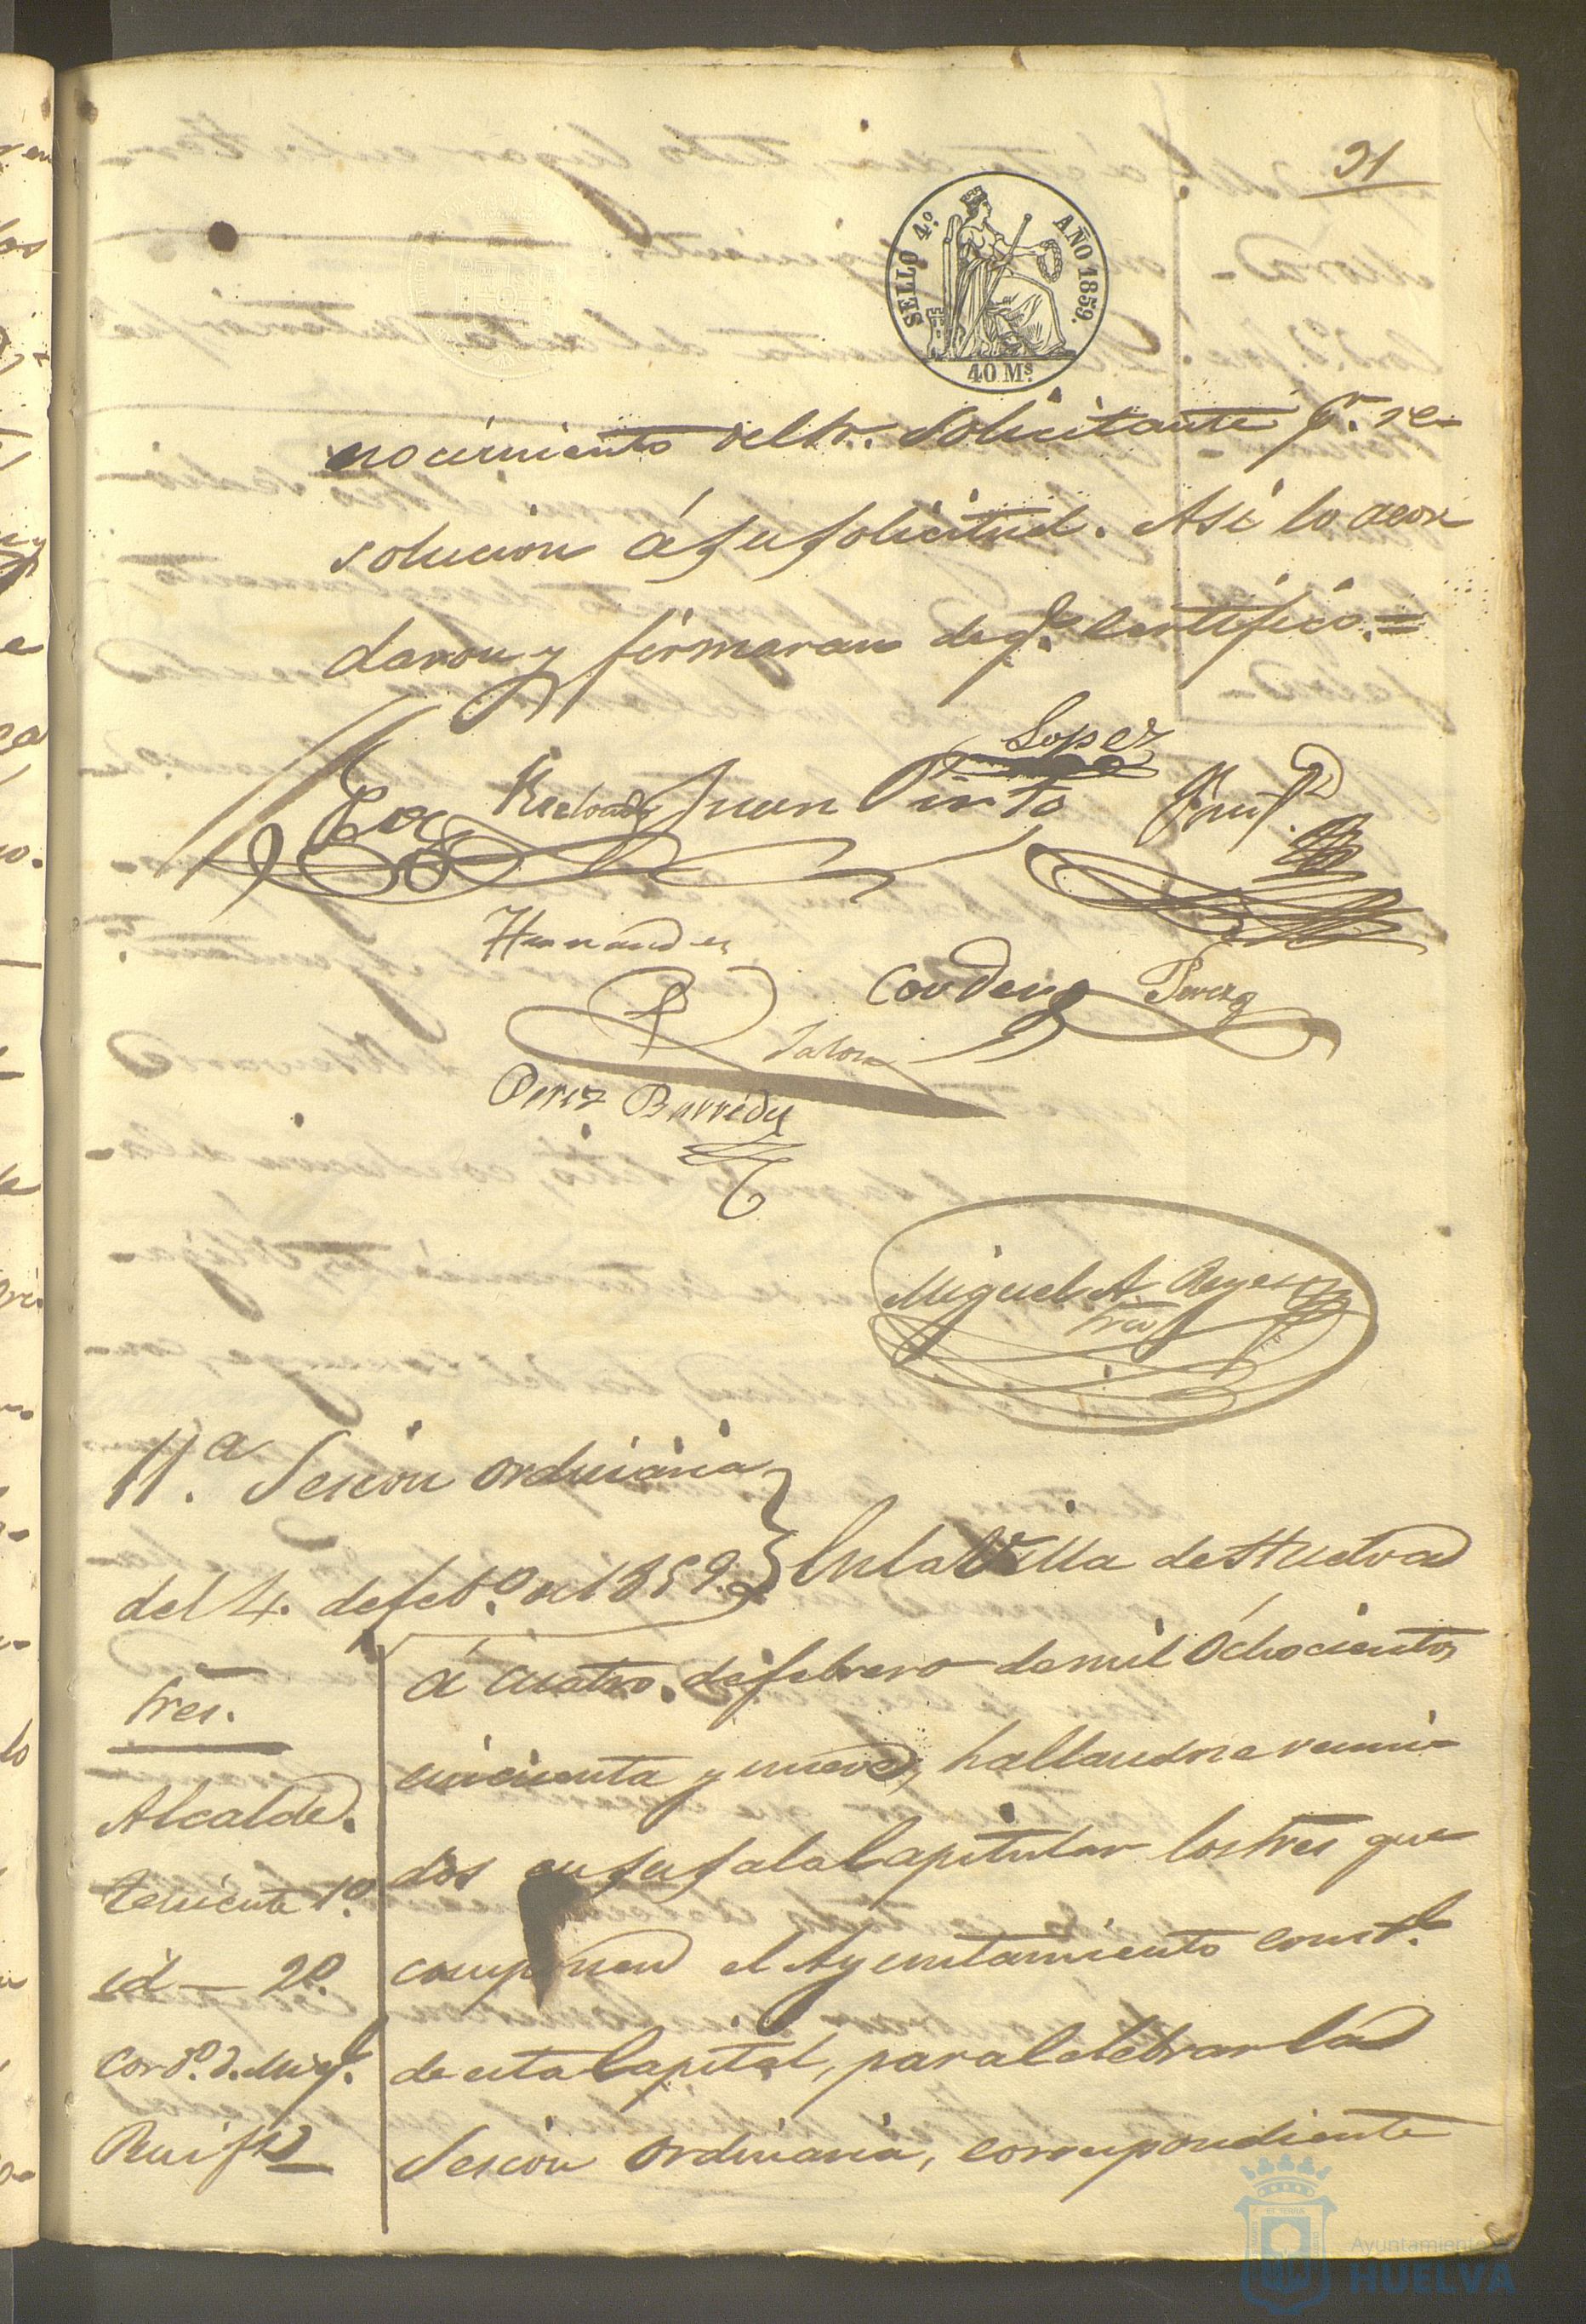 31
SELLO 4.º AÑO 1859.
40 Ms.
nocimiento del Sr. Solicitante pr. re-
solucion á su solicitud. Asi lo acor
daron y firmaran de qe. certifico.=
Lopez
Juan Pinto
Hernandez
Perez
Perez Barreda
Miguel A. Reyes
Srio
11.ª Sesion ordinaria
del 4. de feb.º de 1859.
En la Villa de Huelva
á cuatro. de febrero de mil Ochocientos
cincuenta y nueve, hallandose reuni-
dos en su sala Capitular los Sres que
componen el Ayuntamiento const.l
de esta Capital, para celebrar la
Sesion ordinaria, correspondiente
Sres.
Alcalde.
Teniente 1º.
id — 2º.
Cor.dº. D. Migl.
Ruifz
Ayuntamiento
HUELVA